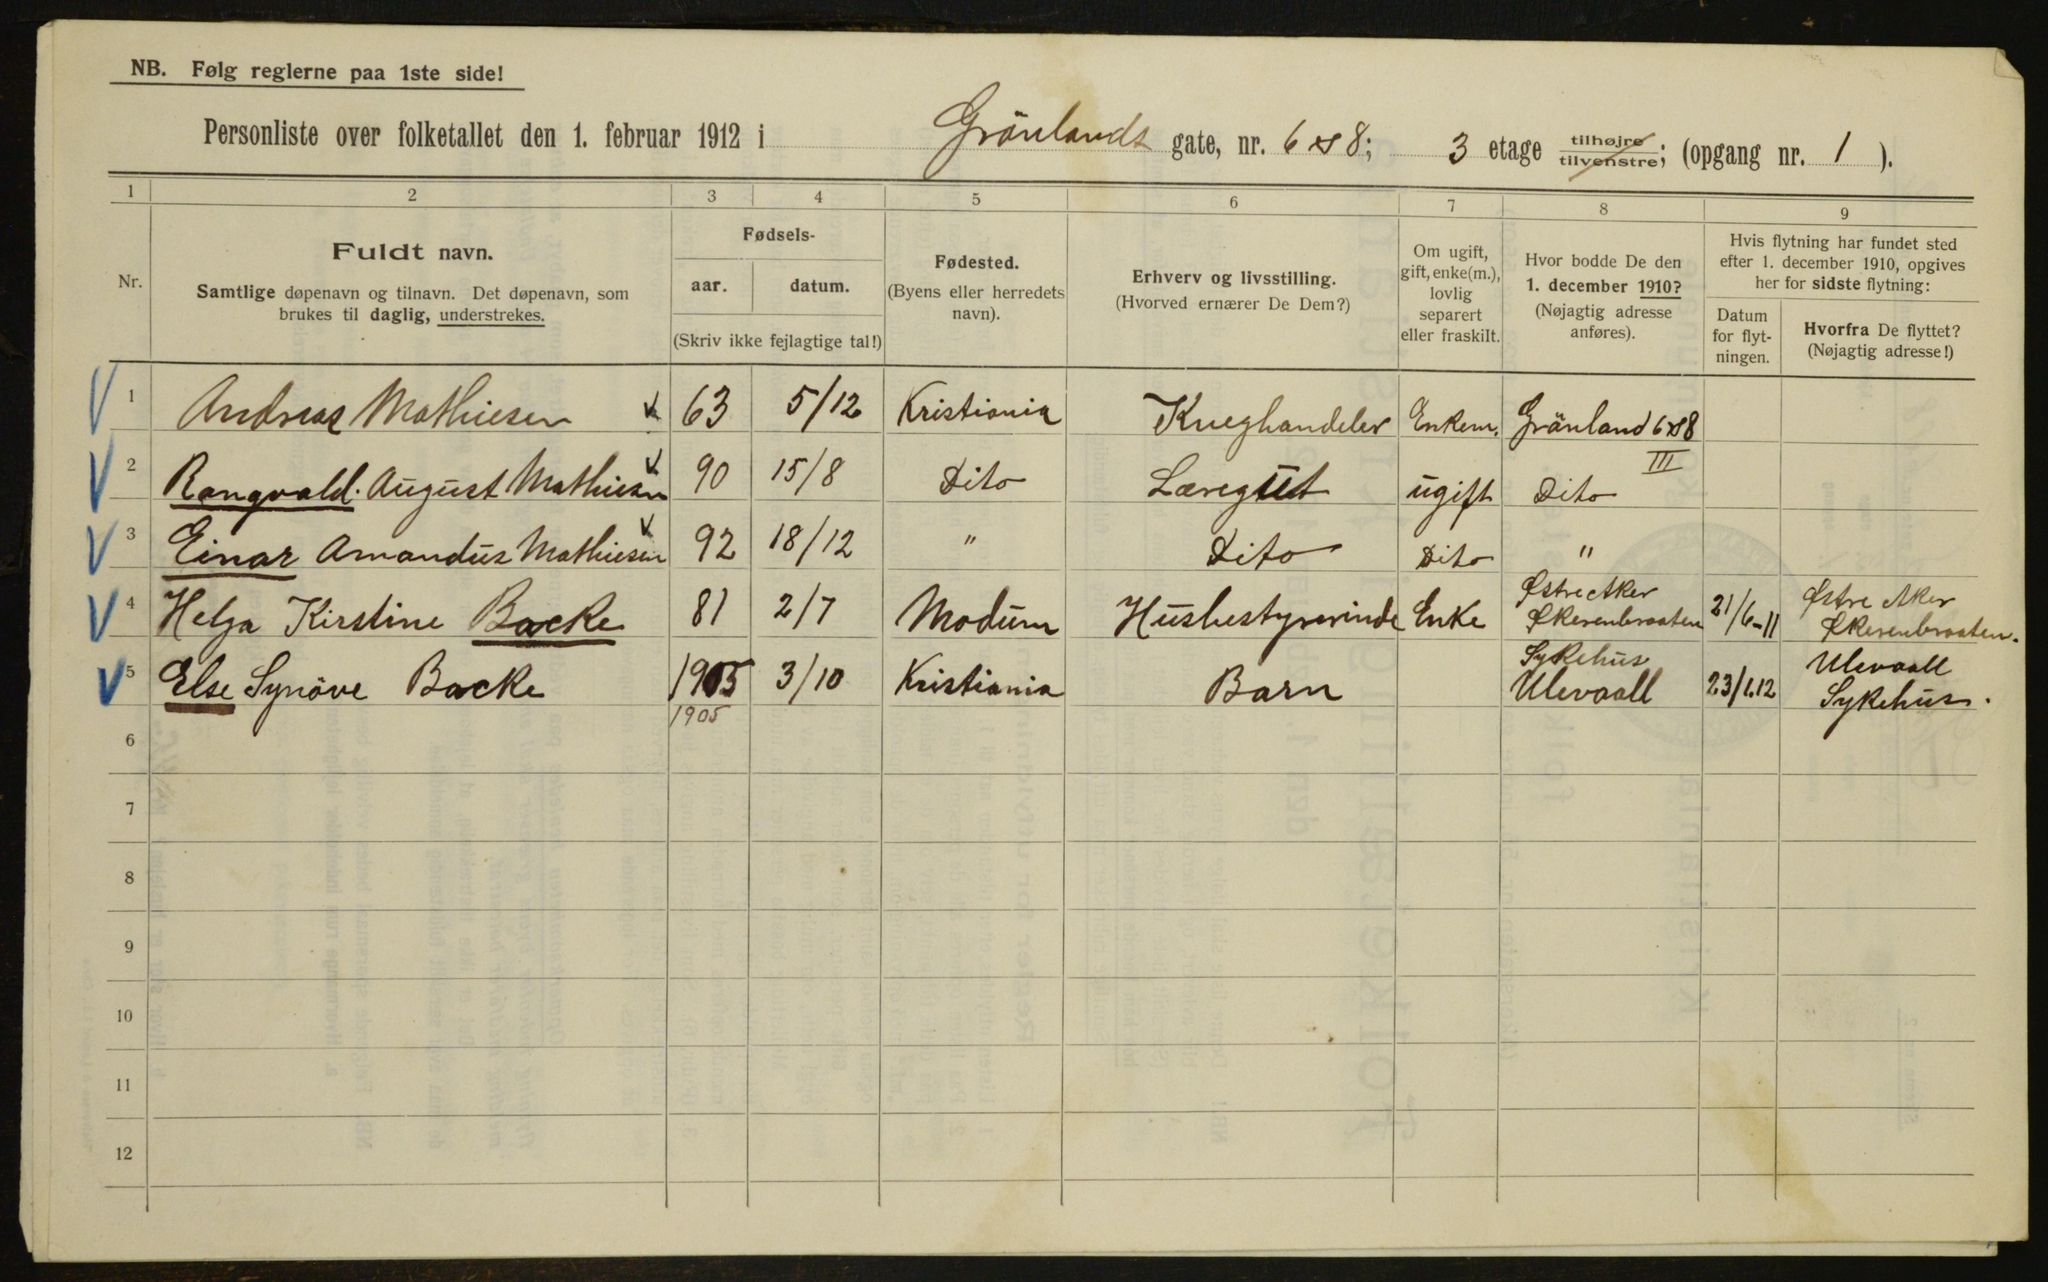 NB. Følg reglerne paa 1ste side!
Personliste over folketallet den 1. februar 1912 i Grönlands gate, nr. 6 & 8; 3 etage tilhøjre / tilvenstre; (opgang nr. 1 ).
1 2 3 4 5 6 7 8 9
Nr.
Fuldt navn.
Samtlige døpenavn og tilnavn. Det døpenavn, som
brukes til daglig, understrekes.
Fødsels-
aar. datum.
(Skriv ikke fejlagtige tal!)
Fødested.
(Byens eller herredets
navn).
Erhverv og livsstilling.
(Hvorved ernærer De Dem?)
Om ugift,
gift, enke(m.),
lovlig
separert
eller fraskilt.
Hvor bodde De den
1. december 1910?
(Nøjagtig adresse
anføres).
Hvis flytning har fundet sted
efter 1. december 1910, opgives
her for sidste flytning:
Datum
for flyt-
ningen.
Hvorfra De flyttet?
(Nøjagtig adresse!)
1 Andreas Mathiesen 63 5/12 Kristiania Kueghandeler Enkem. Grönland 6 & 8
III
2 Rangvald August Mathiesen 90 15/8 Dito Læregut ugift Dito
3 Einar Amandus Mathiesen 92 18/12 " Dito Dito "
4 Helga Kirstine Backe 81 2/7 Modum Husbestyrerinde Enke Østre Aker Økerenbraaten 21/6-11 Østre Aker Økerenbraaten.
5 Else Synöve Backe 1905 3/10 Kristiania Barn Sykehus Ulevaall 23/1.12 Ulevaall Sykehus.
1905
6
7
8
9
10
11
12